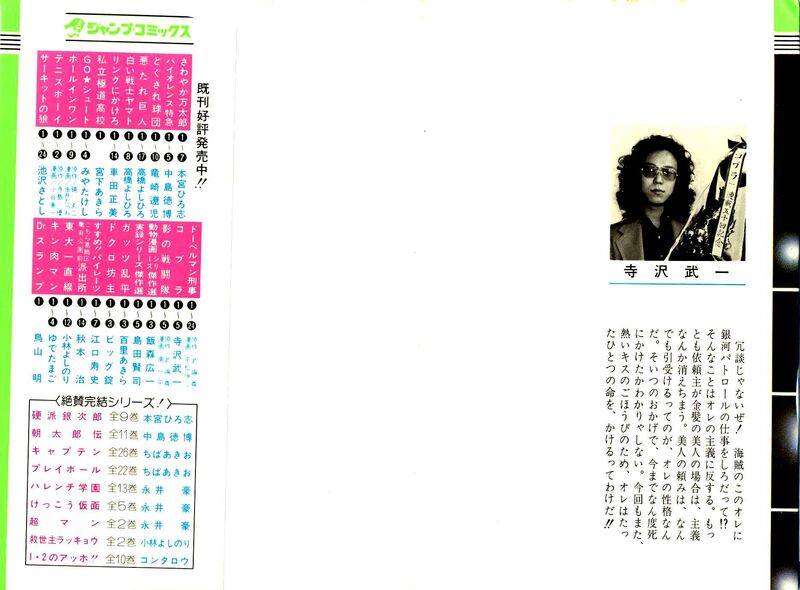 コブラ 連載五十回記念
寺沢武一
冗談じゃないぜ! 海賊のこのオレに
銀河パトロールの仕事をしろだって!?
そんなことはオレの主義に反する。もっ
とも依頼主が金髪の美人の場合は、主義
なんか消えちまう。美人の頼みは、なん
でも引受けるってのが、オレの性格なん
だ。そいつのおかげで、今までなん度死
にかけたかわかりゃしない。今回もまた、
熱いキスのごほうびのため、オレはたっ
たひとつの命を、かけるってわけだ!!
ジャンプ・コミックス
既刊好評発売中!!
さわやか万太郎 ❶〜❼ 本宮ひろ志
バイオレンス特急 ❶〜❺ 中島徳博
どぐされ球団 ❶〜❿ 竜崎遼児
悪たれ巨人 ❶〜⓱ 高橋よしひろ
白い戦士ヤマト ❶〜❽ 高橋よしひろ
リングにかけろ ❶〜⓮ 車田正美
私立極道高校 ❶ 宮下あきら
GO★シュート ❶〜❹ みやたけし
ホールインワン ❶〜❾
テニスボーイ ❶〜❷
サーキットの狼 ❶〜㉔ 池沢さとし
ドーベルマン刑事 ❶〜㉔
コブラ ❶〜❺ 寺沢武一
影の戦闘隊 ❶〜❺
動物漫画シリーズ傑作選 ❶〜❸ 飯森広一
実録シリーズ傑作選 ❶〜❺ 島田賢司
ガッツ乱平 ❶〜❸ 百里あきら
ドクロ坊主 ❶〜❸ ビッグ錠
すすめ!!パイレーツ ❶〜❼ 江口寿史
こちら葛飾区亀有公園前派出所 ❶〜⓮ 秋本 治
東大一直線 ❶〜⓬ 小林よしのり
キン肉マン ❶〜❹ ゆでたまご
Dr.スランプ ❶ 鳥山 明
〈絶賛完結シリーズ!〉
硬派銀次郎 全9巻 本宮ひろ志
朝太郎伝 全11巻 中島徳博
キャプテン 全26巻 ちばあきお
プレイボール 全22巻 ちばあきお
ハレンチ学園 全13巻 永井 豪
けっこう仮面 全5巻 永井 豪
超マン 全2巻 永井 豪
救世主ラッキョウ 全2巻 小林よしのり
1・2のアッホ!! 全10巻 コンタロウ